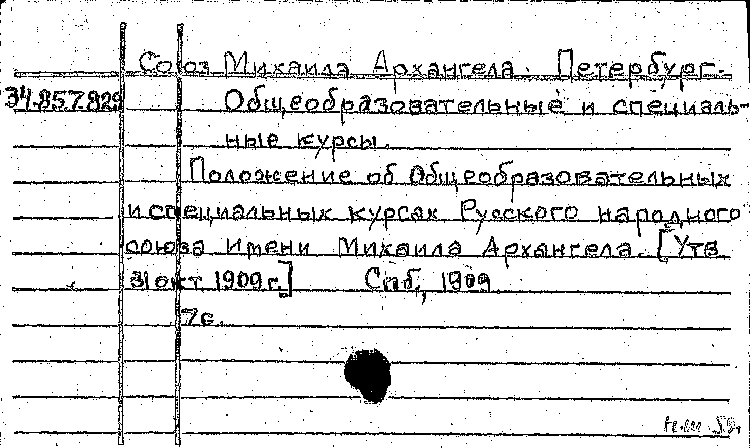 Союз Михаила Архангела. Петербург.
34.857.829 Общеобразовательные и специаль-
ные курсы.
Положение об Общеобразовательных
и специальных курсах Русского народного
союза имени Михаила Архангела. [Утв.
31 окт. 1909 г.] Спб., 1909.
7 с.